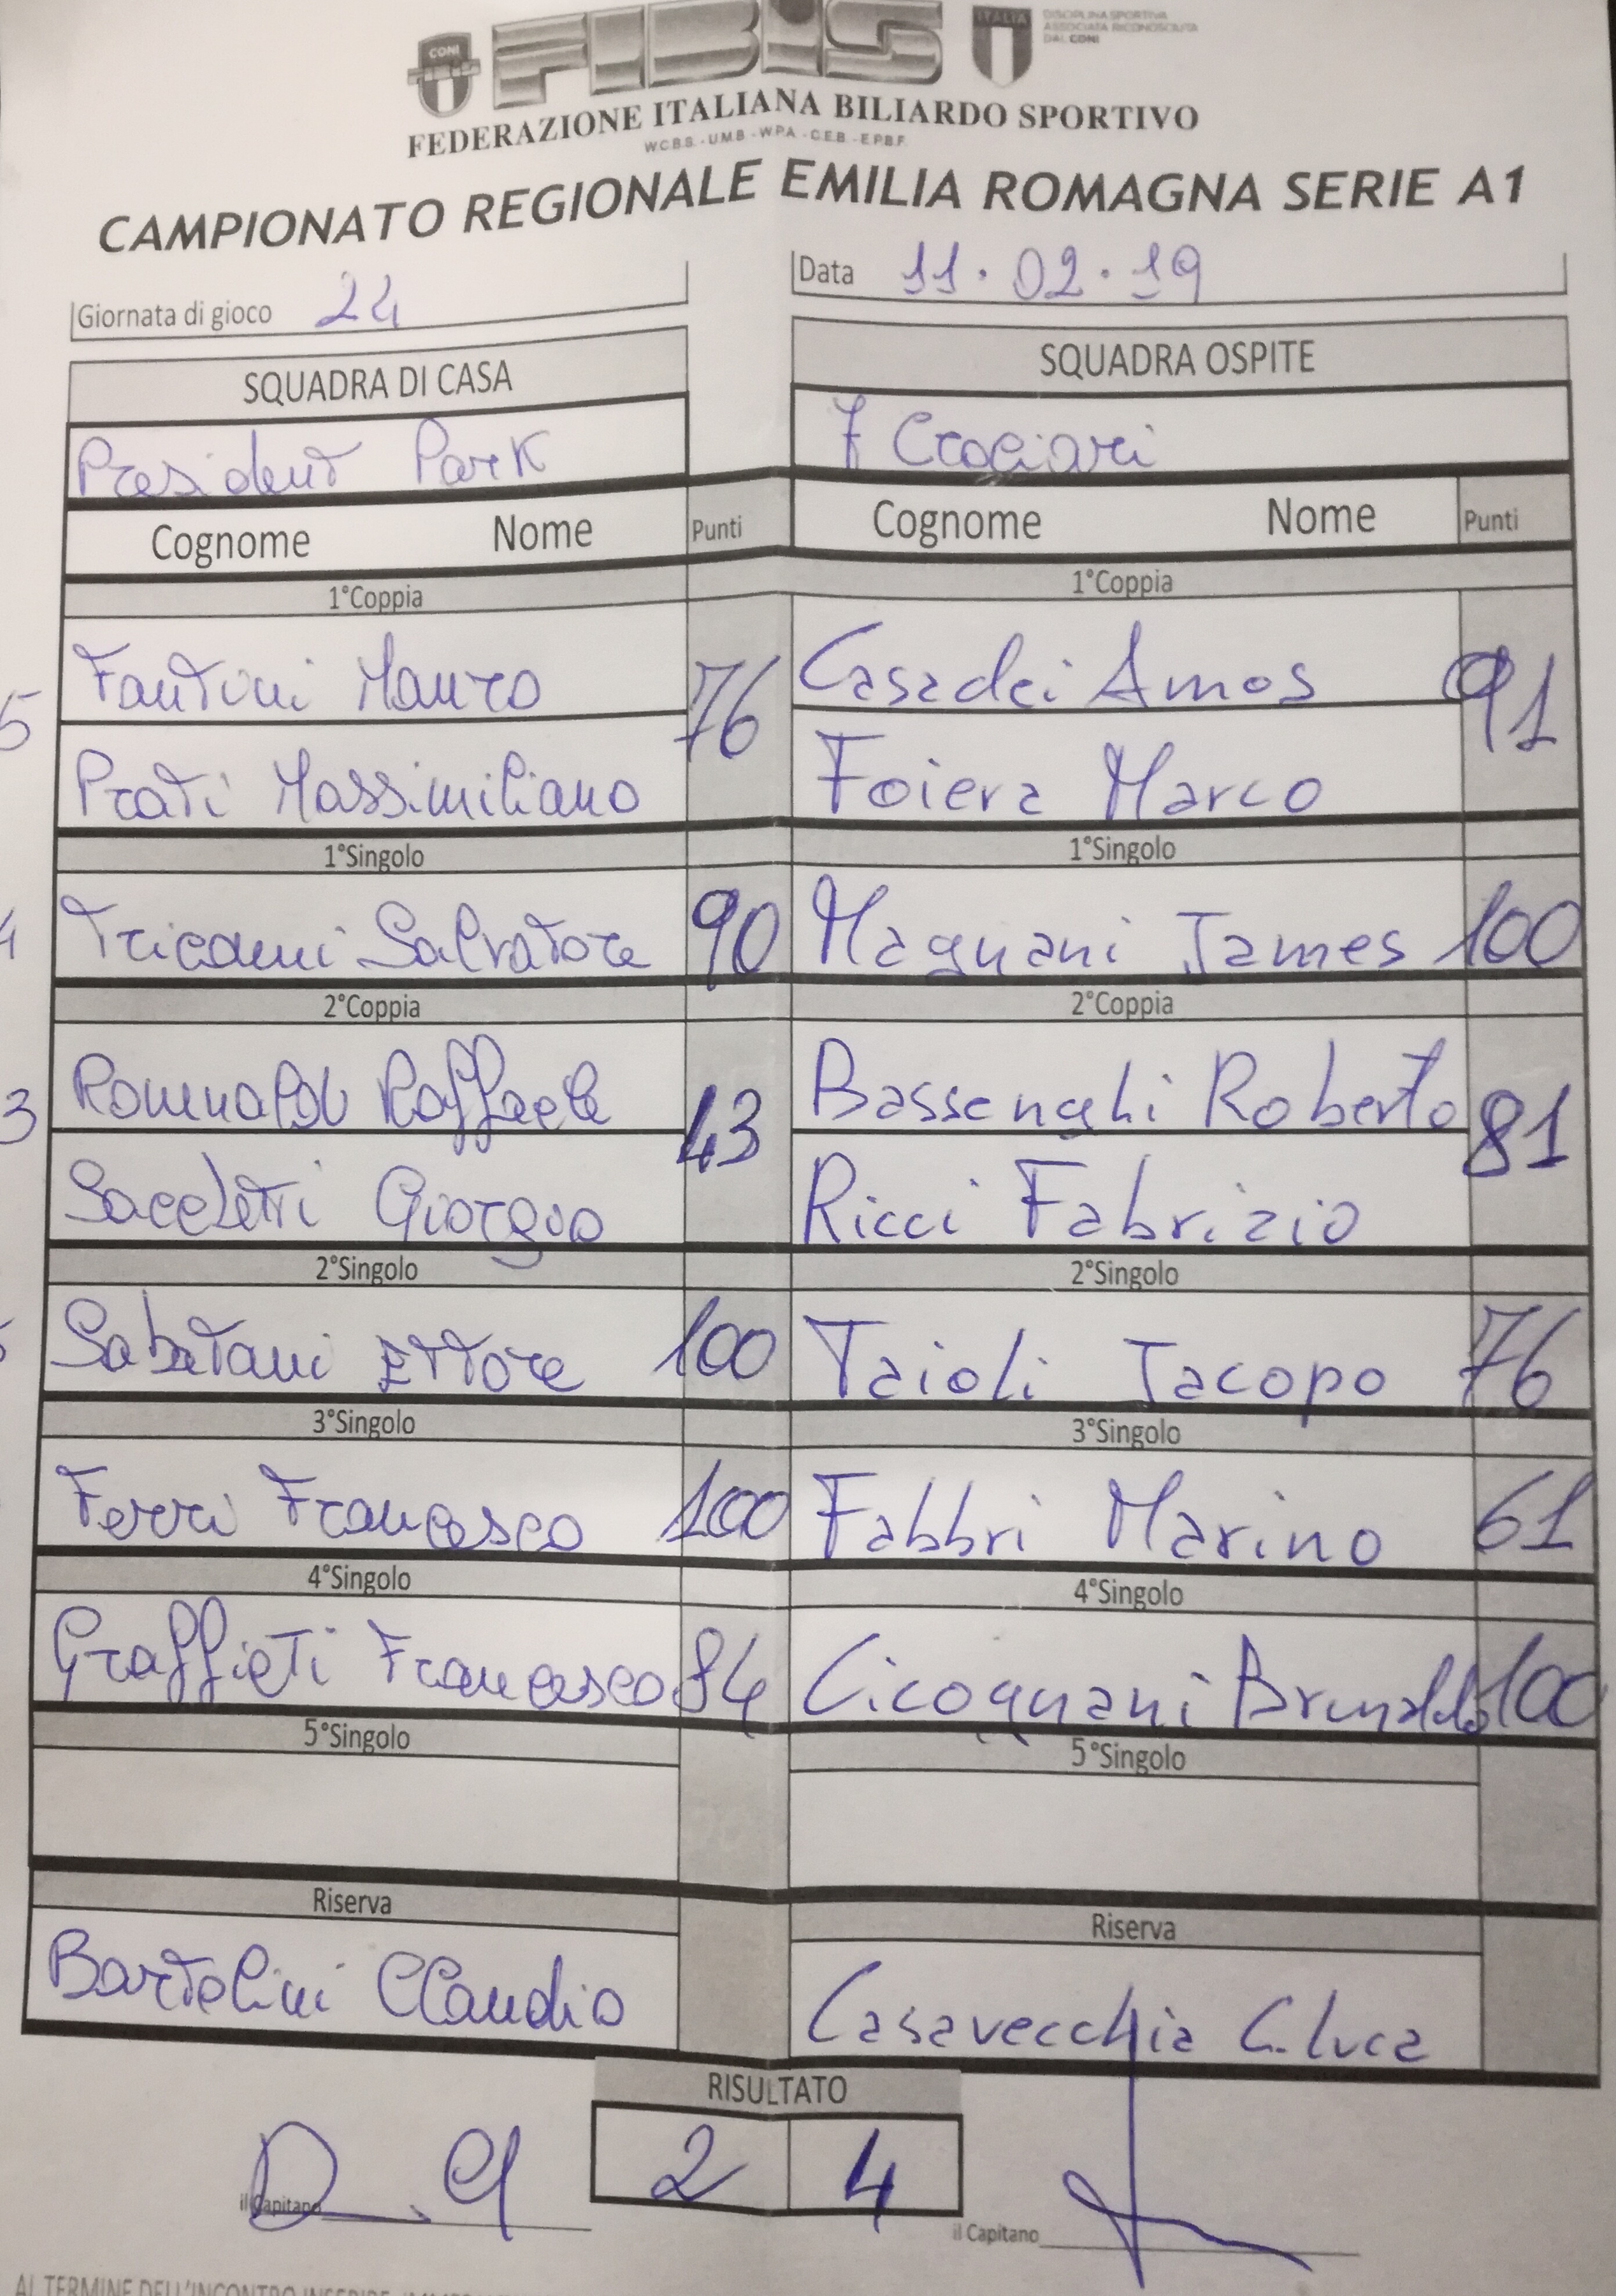 CONI
FIBIS
ITALIA
DISCIPLINA SPORTIVA
ASSOCIATA RICONOSCIUTA
DAL CONI
FEDERAZIONE ITALIANA BILIARDO SPORTIVO
W.C.B.S. - U.M.B. - W.P.A. - C.E.B. - E.P.B.F.
CAMPIONATO REGIONALE EMILIA ROMAGNA SERIE A1
Giornata di gioco 24 Data 11.02.19
SQUADRA DI CASA SQUADRA OSPITE
President Park 7 Crociari
Cognome Nome Punti Cognome Nome Punti
1°Coppia 1°Coppia
Fantini Mauro 76 Casadei Amos 91
5
Prati Massimiliano Foiera Marco
1°Singolo 1°Singolo
4 Tricomi Salvatore 90 Magnani James 100
2°Coppia 2°Coppia
Raffaele Bassenghi Roberto
3 43 81
Sacchetti Giorgio Ricci Fabrizio
2°Singolo 2°Singolo
Sabatani Ettore 100 Taioli Jacopo 76
3°Singolo 3°Singolo
Ferri Francesco 100 Fabbri Marino 61
4°Singolo 4°Singolo
Graffieti Francesco 84 Cicognani Brunaldo 100
5°Singolo 5°Singolo
Riserva Riserva
Bartolini Claudio Casavecchia G.luca
RISULTATO
2 4
il Capitano il Capitano
AL TERMINE DELL'INCONTRO INSERIRE